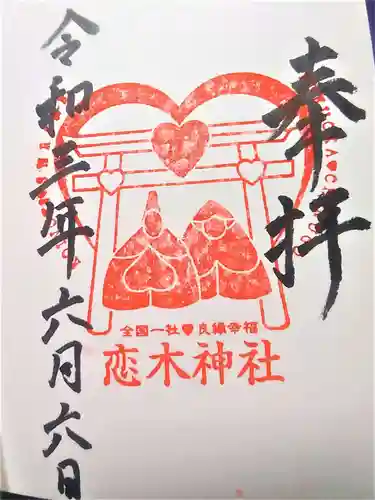 奉拝
全国一社♥良縁幸福
恋木神社
令和三年六月六日